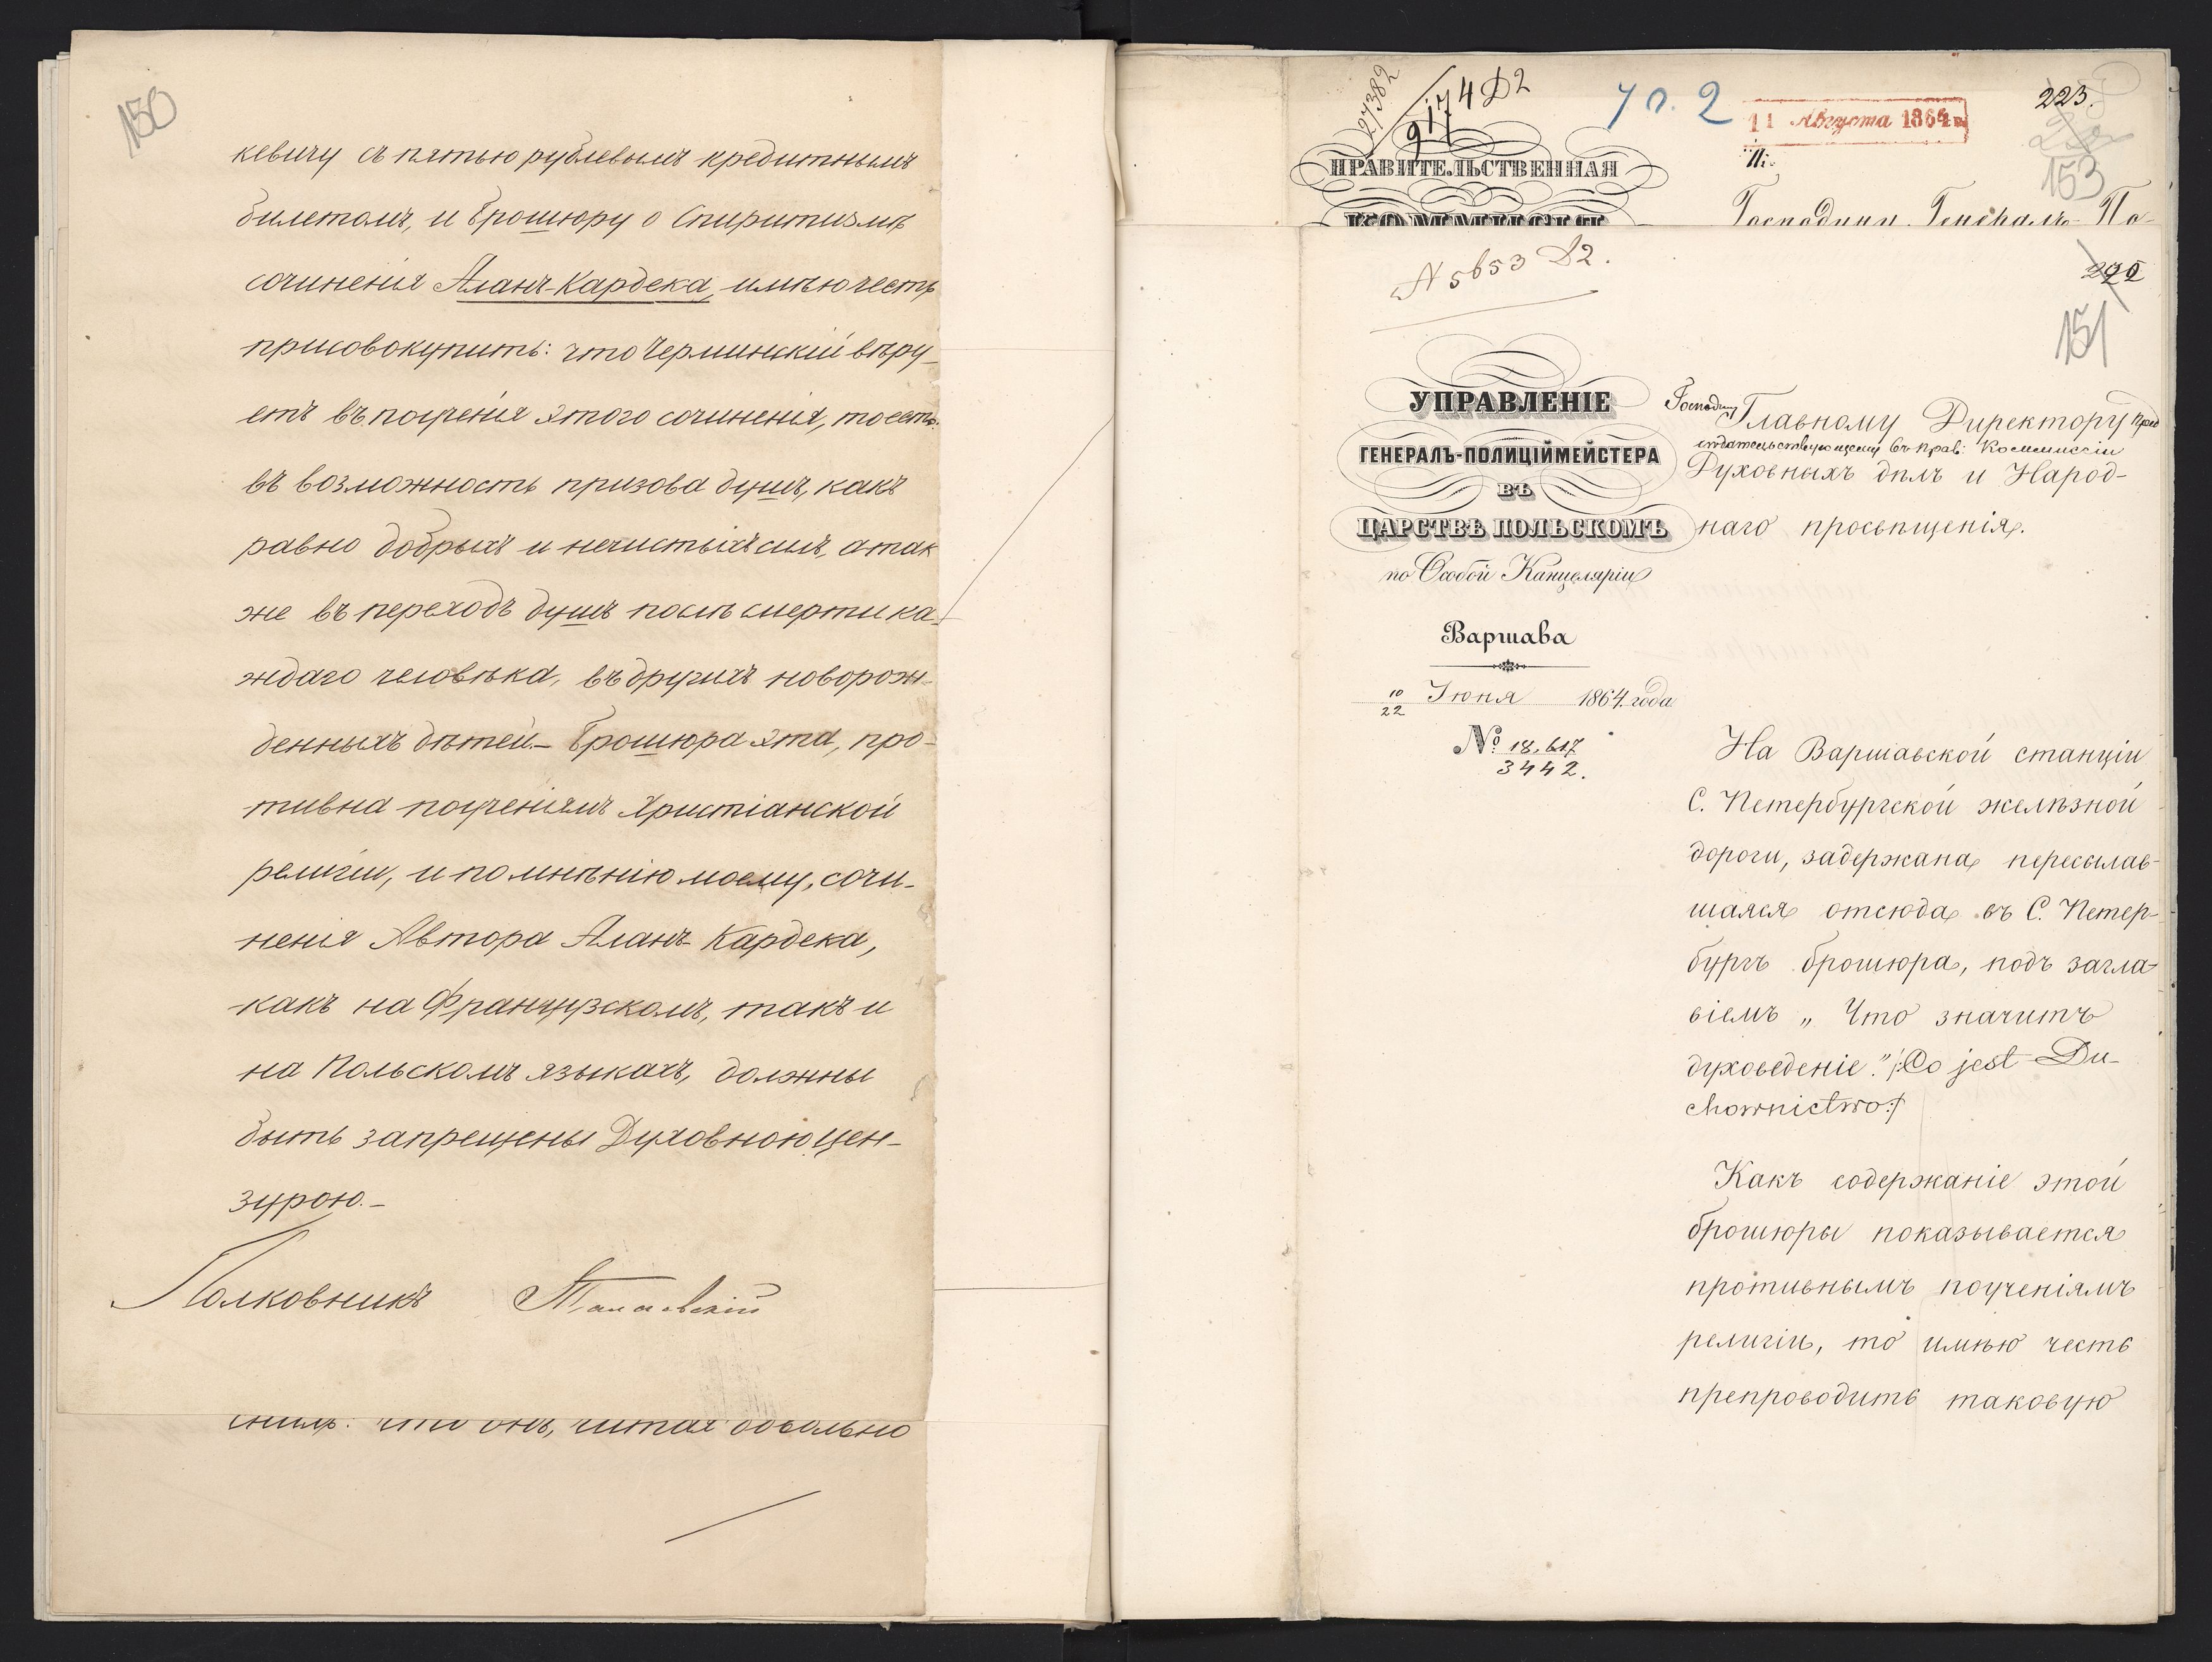 150
кевичу съ пятью рублевымъ кредитнымъ
билетомъ, и брошюру о Спиритизмѣ
сочиненія Аланъ-Кардека, имѣю честь
присовокупить: что Черминскій вѣру-
етъ въ поученія этого сочиненія, то есть:
въ возможность призова душъ, какъ
равно добрыхъ и нечистыхъ силъ, а так
же въ переходъ душъ послѣ смерти ка-
ждаго человѣка, въ другихъ новорож-
денныхъ дѣтей.- Брошюра эта, про-
тивна поученіямъ Христіанской
религіи, и по мнѣнію моему, сочи-
ненія Автора Аланъ-Кардека,
какъ на Французскомъ, такъ и
на Польскомъ языкахъ, должны
быть запрещены Духовною Цен-
зурою.-
Полковникъ
что онъ, читая довольно
27382
9174 Д2
11 Августа 1864
223.
153
ПРАВИТЕЛЬСТВЕННАЯ
КОММИСІЯ
Господину Генералъ-По-
N 5653 Д2.
222
151
УПРАВЛЕНІЕ
ГЕНЕРАЛЪ-ПОЛИЦІЙМЕЙСТЕРА
ВЪ
ЦАРСТВѢ ПОЛЬСКОМЪ
по Особой Канцеляріи
Варшава
10/22 Іюня 1864 года
№ 18,617
3442.
Господину Главному Директору Пред
сѣдательствующему въ Прав: Коммиссіи
Духовныхъ дѣлъ и Народ-
наго просвѣщенія.
На Варшавской станціи
С. Петербургской желѣзной
дороги, задержана пересылав-
шаяся отсюда въ С. Петер-
бургъ брошюра, подъ загла-
віемъ „Что значитъ
духоведеніе." /:Co jest Du-
chownictwo:/
Какъ содержаніе этой
брошюры показывается
противнымъ поученіямъ
религіи, то имѣю честь
препроводить таковую